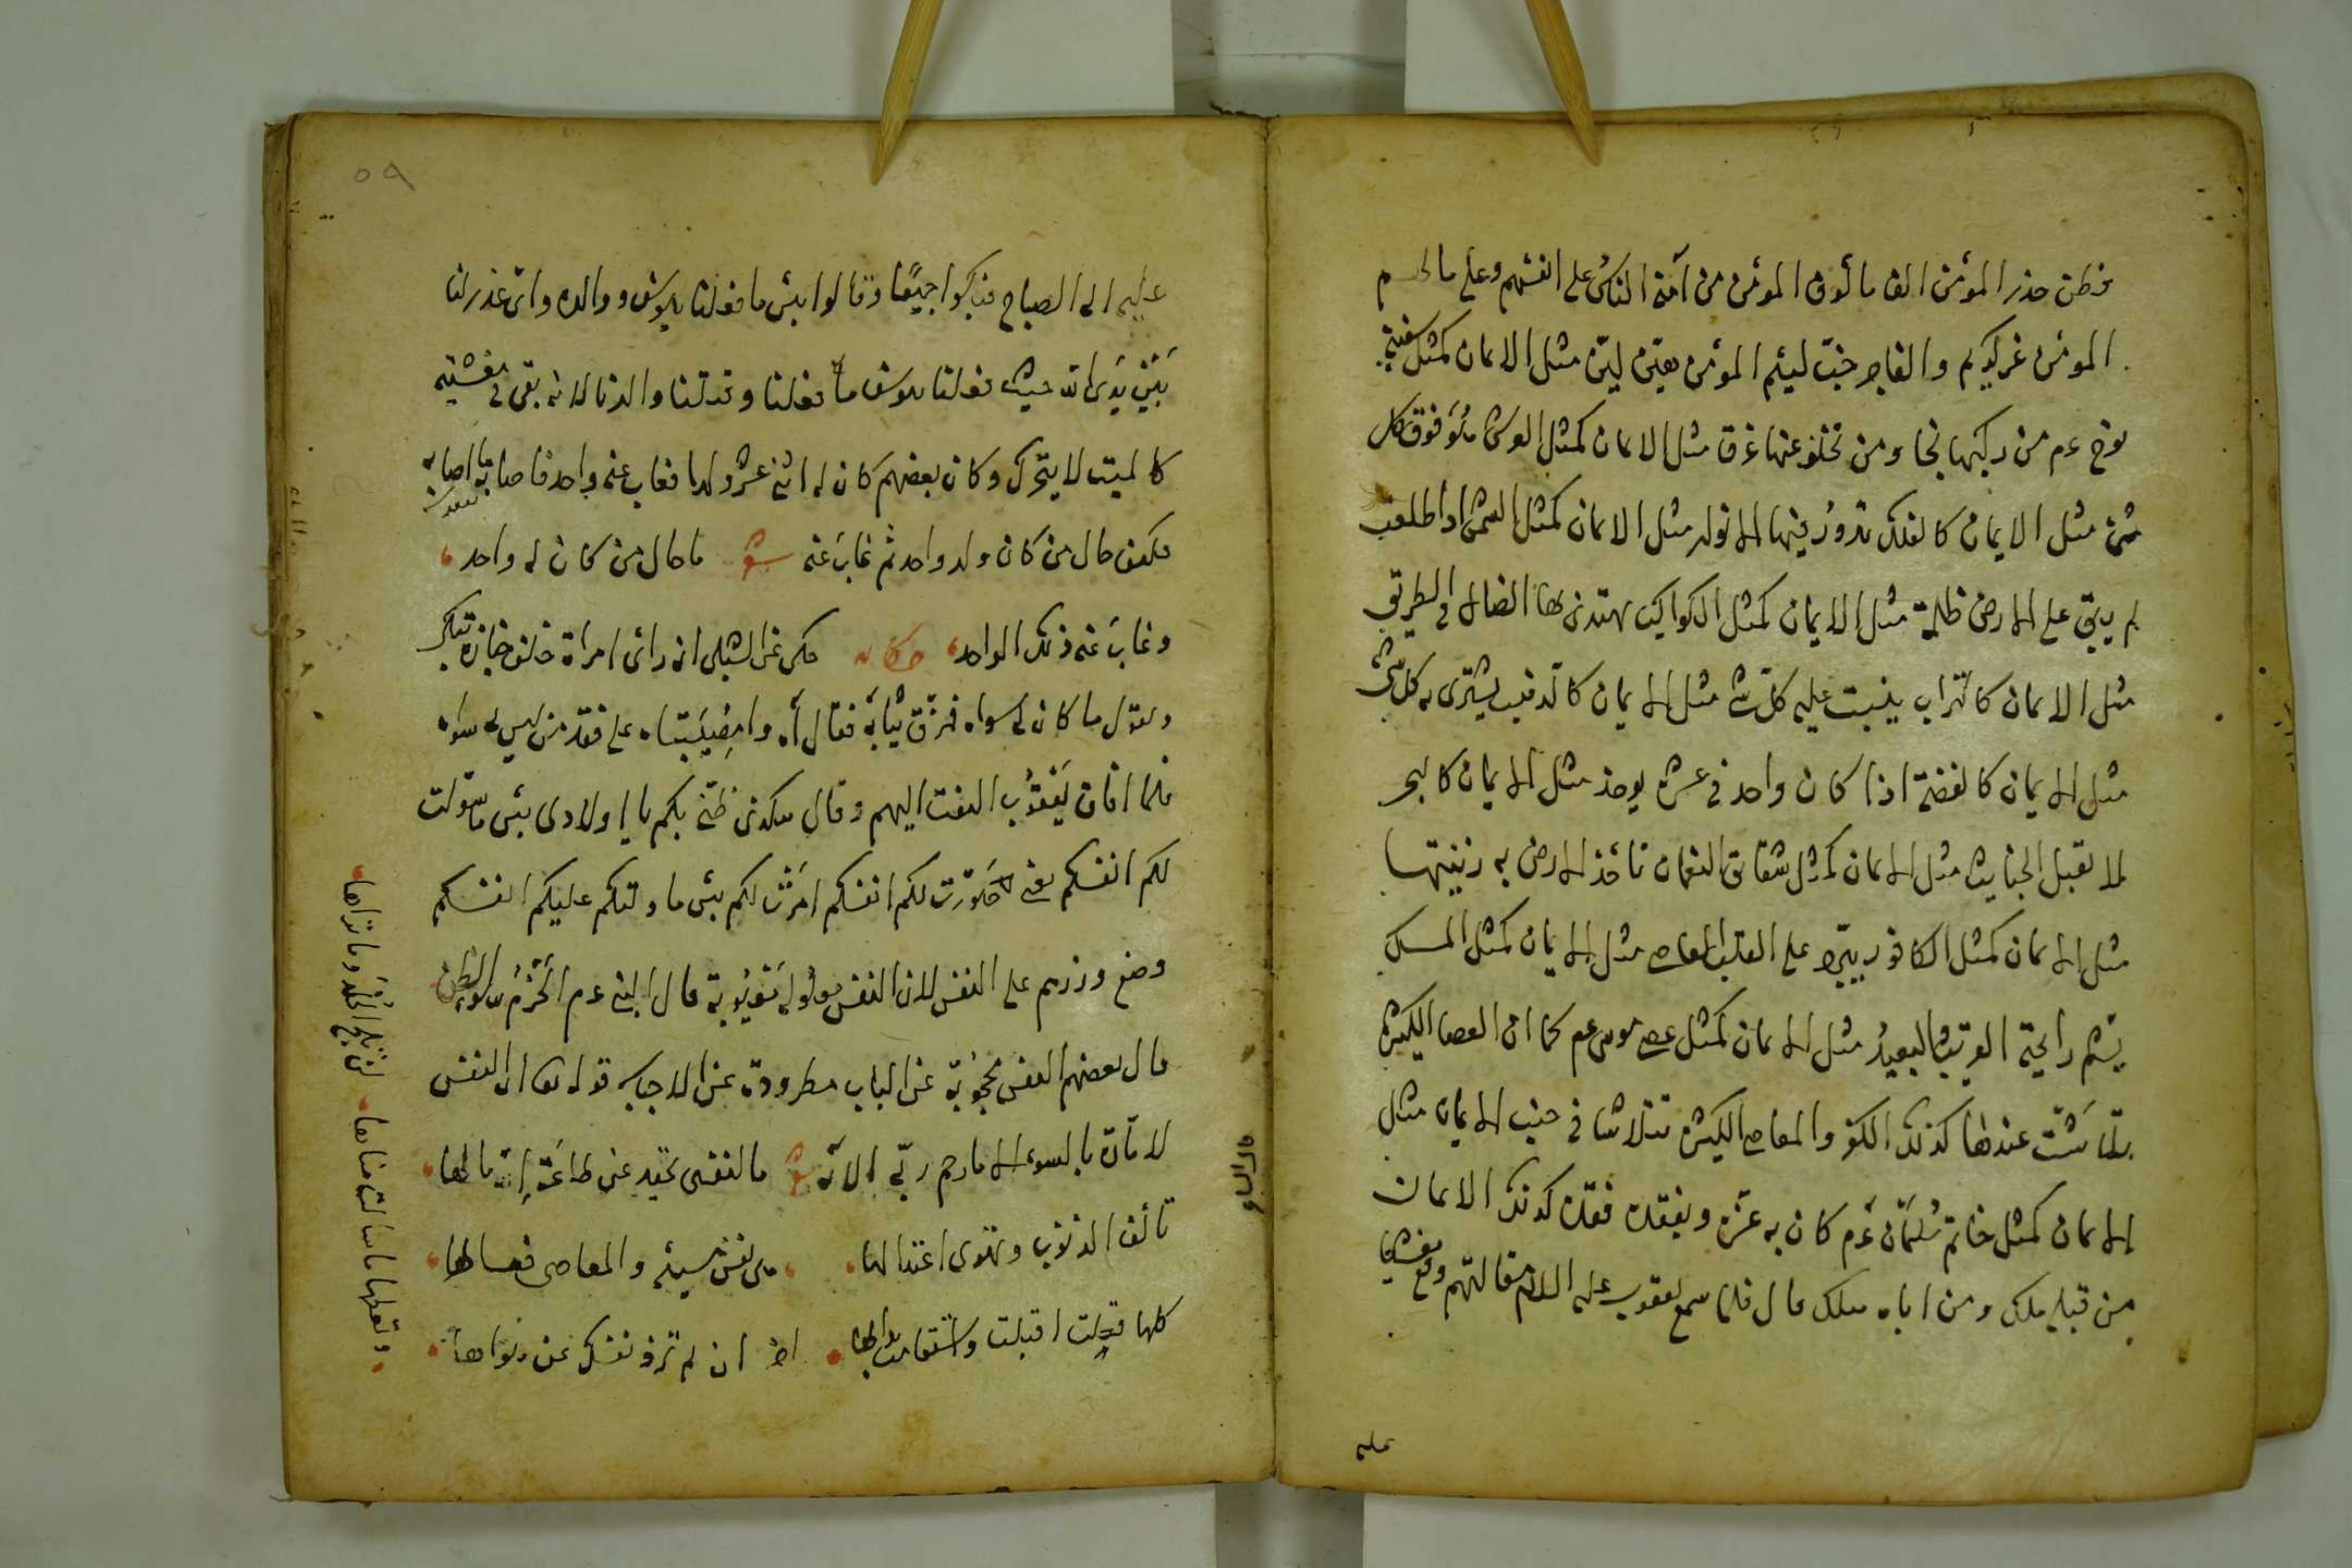 فطن حذر المؤمن الف مألوف المؤمن من آمنه الناس على انفسهم وعلى مالهم
المؤمن غر كريم والفاجر خبّ لئيم المؤمن هيّن ليّن مثل الايمان كمثل سفينة
نوح عم من ركبها نجا ومن تخلف عنها غرق مثل الايمان كمثل العرش هو فوق كل
شئ مثل الايمان كالفلك تدور فيها مثل الايمان كمثل الشمس اذا طلعت
لم يبق على الارض ظلمة مثل الايمان كمثل الكواكب يهتدى بها الضال فى الطريق
مثل الايمان كالتراب ينبت عليه كل شئ مثل الايمان كالذهب يشترى به كل شئ
مثل الايمان كالفضة اذا كان واحد فى عشرة يوخذ مثل الايمان كالبحر
لا تقبل الجنايت مثل الايمان كمثل شقائق النعمان تأخذ الارض به زينتها
مثل الايمان كمثل الكافور يبرد على القلب المعاصى مثل الايمان كمثل المسك
يشم رايحة القريب والبعيد مثل الايمان كمثل عصى موسى عم كما ان العصا الكبش
تلاشت عندها كذلك الكفر والمعاصى الكبش تتلاشا فى جنب الايمان مثل
الايمان كمثل خاتم سليمان عم كان به عزه وبفقده فقده كذلك الايمان
من قبله ملك ومن اباه هلك قال فلما سمع يعقوب عليه السلام مقالتهم وقع مغشيا
عليه
عليه الى الصباح فبكوا جميعًا وقالوا بئس ما فعلنا بيوسف ووالده واى عذر لنا
بَيْن يَدَى الله حيث فعلنا بيوسف ما فعلنا وقتلنا والدنا لانه بقى فى مغشيته
كالميت لا يتحرك وكان بعضهم كان له اثنى عشر ولدا فغاب عنه واحد فاصابه ما اصابه
فكيف حال من كان ولد واحد ثم غابَ عنه شعر ما حال من كان له واحد
وغابَ عنه ذلك الواحد حكايه حكى عن الشبلى انه رأى امراة خلف جنازة تبكى
وتقول ما كان لى سواه فمزّق ثيابَه فقال آه وا مُصِيبَتاه على فقد من ليس له سواه
فلما افاق يَعْقُوب التفت اليهم وقال هكذى ظنّى بكم يا اولادى بئس ما سوّلت
لكم انفسكم يعنى صَوّرت لكم انفسكم امَرَتْ لكم بئس ما دلتكم عليكم انفسكم
وضع وزرهم على النفس لان النفس معلولة مَعْيُوبة قال النبى عم الحَزْمُ سوء الظن
قال بعضهم النفس محجُوبة عن الباب مطرودة عن الاجابه قوله تعا ان النفس
لامّارة بالسوء الا ما رحم ربّى الايه شعر ما لنفسى تحيد عن طاعَة الله ما لها
تألف الذنوب وتهوى اغتدالها هى نفس مسيئه والمعاصى فعالها
كلما قيلت اقبلت واستقامت بدا لها اخر ان لم تزف نفسك عن هواها
وتعطها ما سَالَت مناها لن تلج الخلد وما تراها